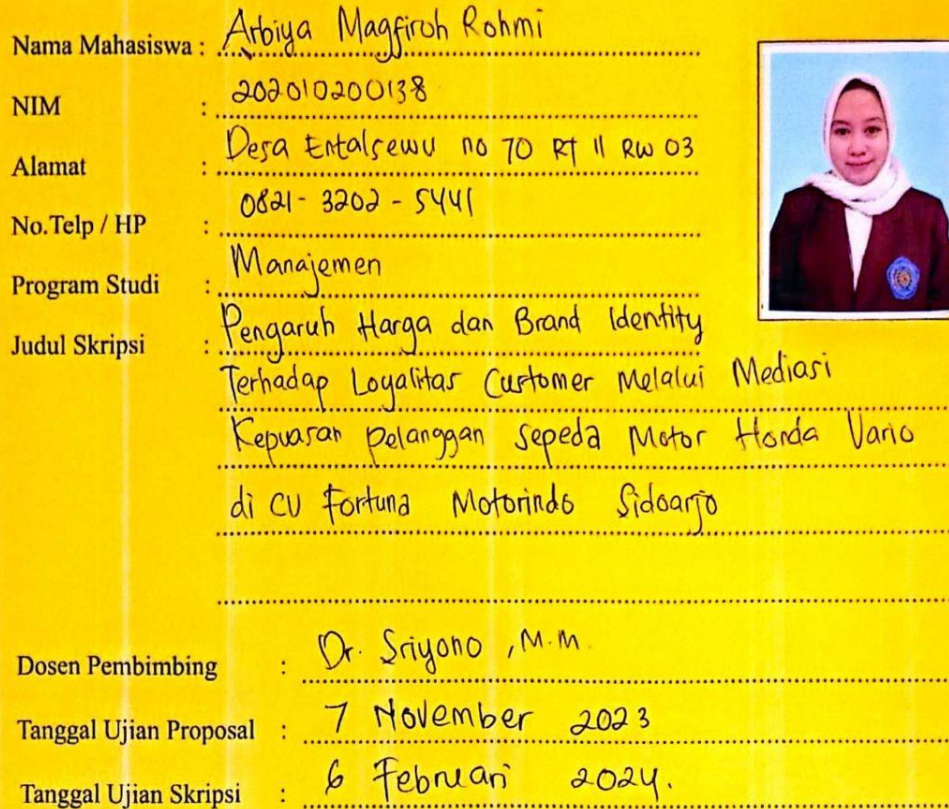 Nama Mahasiswa : Arbiya Magfiroh Rohmi
NIM : 202010200138
Alamat : Desa Entalsewu no 70 RT 11 RW 03
No.Telp / HP : 0821-3202-5441
Program Studi : Manajemen
Judul Skripsi : Pengaruh Harga dan Brand Identity
Terhadap Loyalitas Customer Melalui Mediasi
Kepuasan pelanggan Sepeda Motor Honda Vario
di CV Fortuna Motorindo Sidoarjo
Dosen Pembimbing : Dr. Sriyono, M.M.
Tanggal Ujian Proposal : 7 November 2023
Tanggal Ujian Skripsi : 6 Februari 2024.